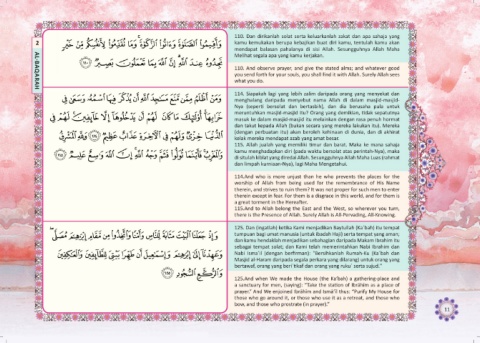 2
AL-BAQARAH
وَأَقِيمُوا۟ ٱلصَّلَوٰةَ وَءَاتُوا۟ ٱلزَّكَوٰةَ ۚ وَمَا تُقَدِّمُوا۟ لِأَنفُسِكُم مِّنْ خَيْرٍ
تَجِدُوهُ عِندَ ٱللَّهِ ۗ إِنَّ ٱللَّهَ بِمَا تَعْمَلُونَ بَصِيرٌ ﴿١١٠﴾
110. Dan dirikanlah solat serta keluarkanlah zakat dan apa sahaja yang
kamu kemukakan berupa kebajikan buat diri kamu, tentulah kamu akan
mendapat balasan pahalanya di sisi Allah. Sesungguhnya Allah Maha
Melihat segala apa yang kamu kerjakan.
110. And observe prayer, and give the stated alms; and whatever good
you send forth for your souls, you shall find it with Allah. Surely Allah sees
what you do.
وَمَنْ أَظْلَمُ مِمَّن مَّنَعَ مَسَـٰجِدَ ٱللَّهِ أَن يُذْكَرَ فِيهَا ٱسْمُهُۥ وَسَعَىٰ فِى
خَرَابِهَآ ۚ أُو۟لَـٰٓئِكَ مَا كَانَ لَهُمْ أَن يَدْخُلُوهَآ إِلَّا خَآئِفِينَ ۚ لَهُمْ فِى
ٱلدُّنْيَا خِزْىٌ وَلَهُمْ فِى ٱلْـَٔاخِرَةِ عَذَابٌ عَظِيمٌ ﴿١١٤﴾ وَلِلَّهِ ٱلْمَشْرِقُ
وَٱلْمَغْرِبُ ۚ فَأَيْنَمَا تُوَلُّوا۟ فَثَمَّ وَجْهُ ٱللَّهِ ۚ إِنَّ ٱللَّهَ وَٰسِعٌ عَلِيمٌ ﴿١١٥﴾
114. Siapakah lagi yang lebih zalim daripada orang yang menyekat dan
menghalang daripada menyebut nama Allah di dalam masjid-masjid-
Nya (seperti bersolat dan bertadzkir), dan dia berusaha pula untuk
meruntuhkan masjid-masjid itu? Orang yang demikian, tidak sepatutnya
masuk ke dalam masjid-masjid itu melainkan dengan rasa penuh hormat
dan takut kepada Allah (bukan secara yang mereka lakukan itu). Mereka
(dengan perbuatan itu) akan beroleh kehinaan di dunia, dan di akhirat
kelak mereka mendapat azab yang amat besar.
115. Allah jualah yang memiliki timur dan barat. Maka ke mana sahaja
kamu menghadapkan diri (pada waktu bersolat atas perintah-Nya), maka
di situlah kiblat yang diredai Allah. Sesungguhnya Allah Maha Luas (rahmat
dan limpah kurniaan-Nya), lagi Maha Mengetahui.
114.And who is more unjust than he who prevents the places for the
worship of Allah from being used for the remembrance of His Name
therein, and strives to ruin them? It was not proper for such men to enter
therein except in fear. For them is a disgrace in this world, and for them is
a great torment in the Hereafter.
115.And to Allah belong the East and the West, so wherever you turn,
there is the Presence of Allah. Surely Allah is All-Pervading, All-Knowing.
وَإِذْ جَعَلْنَا ٱلْبَيْتَ مَثَابَةً لِّلنَّاسِ وَأَمْنًا وَٱتَّخِذُوا۟ مِن مَّقَامِ إِبْرَٰهِـۧمَ مُصَلًّى ۖ
وَعَهِدْنَآ إِلَىٰٓ إِبْرَٰهِـۧمَ وَإِسْمَـٰعِيلَ أَن طَهِّرَا بَيْتِىَ لِلطَّآئِفِينَ وَٱلْعَـٰكِفِينَ
وَٱلرُّكَّعِ ٱلسُّجُودِ ﴿١٢٥﴾
125. Dan (ingatlah) ketika Kami menjadikan Baytullah (Ka'bah) itu tempat
tumpuan bagi umat manusia (untuk ibadah Haji) serta tempat yang aman,
dan kamu hendaklah menjadikan sebahagian daripada Makam Ibrahim itu
sebagai tempat solat; dan Kami telah memerintahkan Nabi Ibrahim dan
Nabi Isma'il (dengan berfirman): "Bersihkanlah Rumah-Ku (Ka'bah dan
Masjid al-Haram daripada segala perkara yang dilarang) untuk orang yang
bertawaf, orang yang beri'tikaf dan orang yang ruku' serta sujud."
125.And when We made the House (the Ka'bah) a gathering place and
a sanctuary for men, (saying): "Take the station of Ibrahim as a place of
prayer." And We enjoined Ibrahim and Isma'il thus: "Purify My House for
those who go around it, or those who use it as a retreat, and those who
bow, and those who prostrate (in prayer)."
11